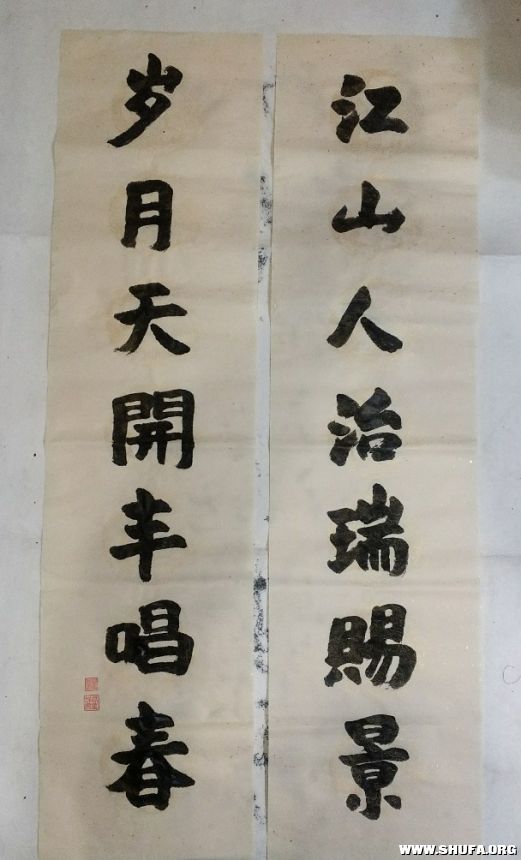 江山人治瑞賜景
岁月天開丰唱春
WWW.SHUFA.ORG